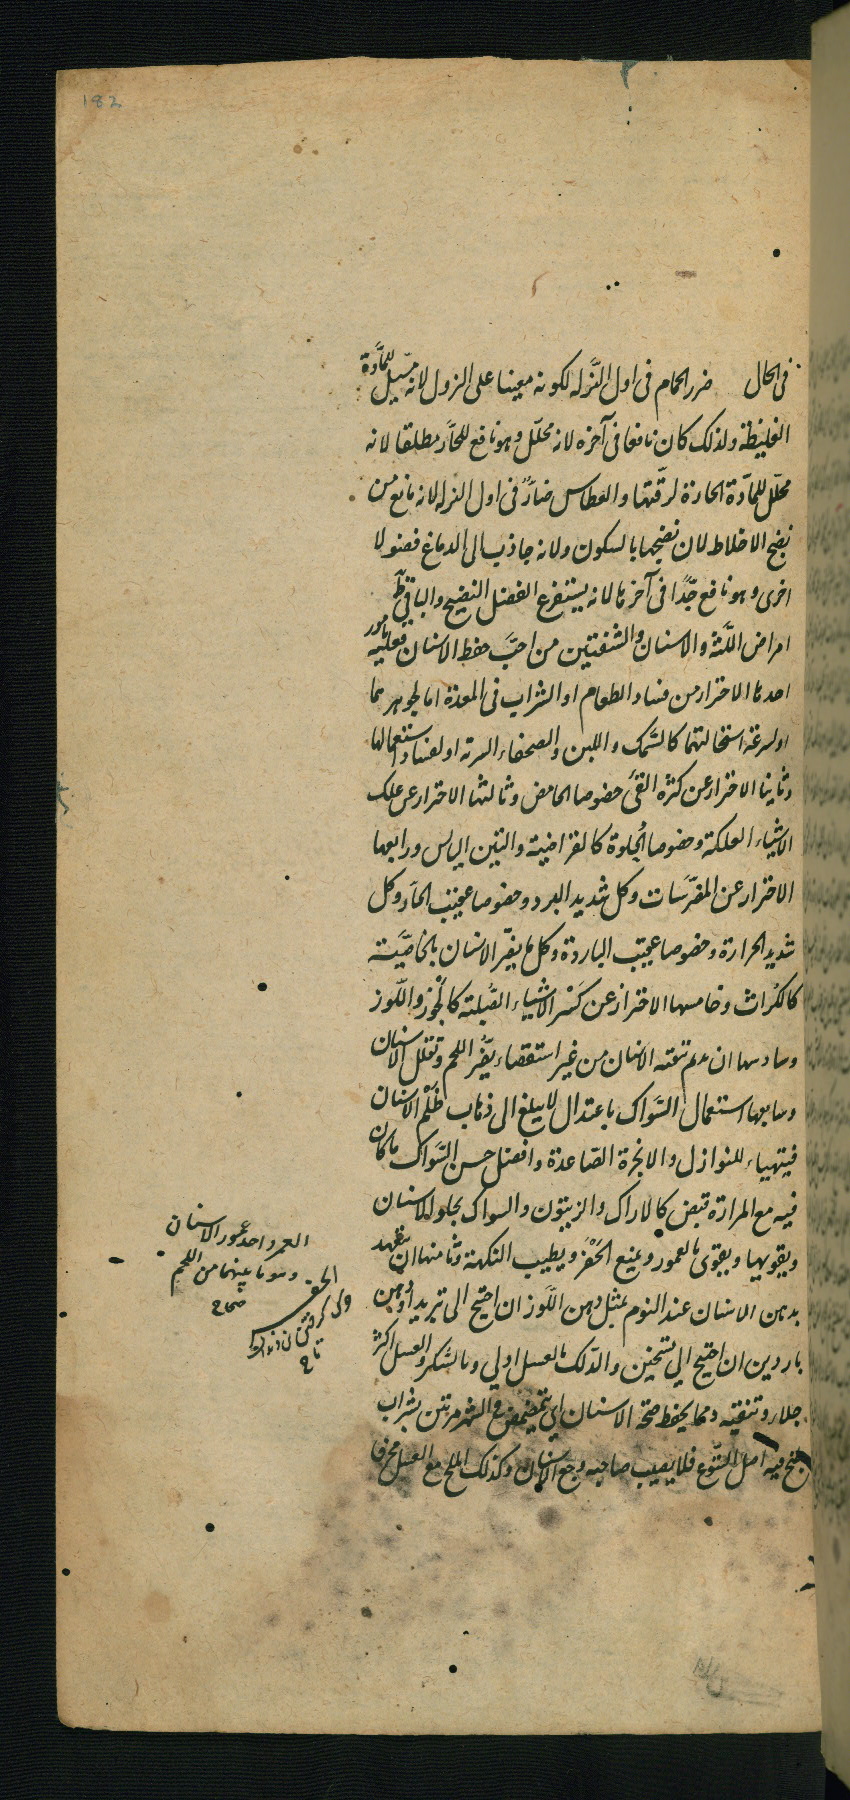 182
فى الحال ضرر الحمام فى اول النَّزله لكونه معينا على النزول لانه مسيّل للمادَّة
الغليظة ولذلك كان نافعا فى آخره لانه محلّل وهو نافع للحارّ مطلقا لانه
محلّل للمادّة الحادة لرقّتها والعطاس ضارّ فى اول النزله لانه مانع من
نضج الاخلاط لان نضجها بالسكون ولانه جاذب الى الدماغ فضولا
اخرى وهو نافع جدًّا فى آخرها لانه يستفرغ الفضل النضيج والباقى
امراض اللَّثة والاسنان والشفتين من احبَّ حفظ الاسنان فعليه بامور
احدها الاحتراز من فساد الطعام او الشراب فى المعدة اما لجوهرهما
او لسرعة استحالتهما كالسَّمك واللبن والصحناء او لفساد استعمالها
وثانيا الاحتراز عن كثرة القئ خصوصا الحامض وثالثها الاحتراز عن علك
الاشياء العلكة وخصوصا الحلوة كالفراضية والتين اليابس ورابعها
الاحتراز عن المضرّسات وكل شديد البرد وخصوصا عقيب الحارّ وكل
شديد الحرارة وخصوصا عقيب الباردة وكل ما يضرّ الاسنان بالخاصّيَّة
كالكُراث وخامسها الاحتراز عن كَسْر الاشياء الصُّلبة كالجوز واللّوز
وسادسها ان يديم تنقية الاسنان من غير استقصاء يضُرّ اللحم وتقلقل الاسنان
وسابعها استعمال السّواك باعتدال لا يبلغ الى ذهاب ظَلْم الاسنان
فيتهياء للنوازل والابخرة الصّاعدة وافضل خشب السّواك ما كان
فيه مع المرارة قبض كالاراك والزيتون والسواك يجلو الاسنان
ويقويها ويقوى العمور ويمنع الحَفْر ويطيب النكهة وثامنها ان يتعهد
بدهن الاسنان عند النوم بمثل دهن اللَّوز ان احتيج الى تبريد او دهن
باردين ان احتيج الى تسخين والدّلك بالعسل اولى وبالسّكر والعسل اكثر
جلاء وتنقية ومما يحفظ صحة الاسنان ان يتمضمض فى الشهر مرتين بشراب
طبخ فيه اصل اليتّوع فلا يصيب صاحبه وجع الاسنان وكذلك الملح مع العسل محرقا
العمر واحد عمور الاسنان
وهو ما بينهما من اللحم
صحاح